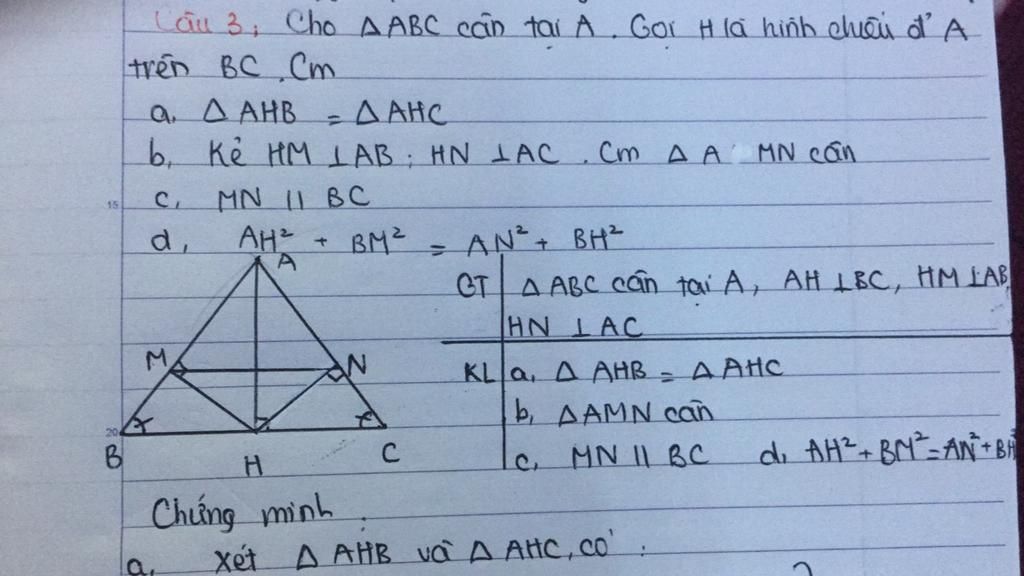 Câu 3: Cho △ABC cân tại A. Gọi H là hình chiếu của A
trên BC. Cm
a, △AHB = △AHC
b, Kẻ HM ⊥ AB; HN ⊥ AC. Cm △AMN cân
c, MN // BC
d, AH² + BM² = AN² + BH²
GT △ABC cân tại A, AH ⊥ BC, HM ⊥ AB,
HN ⊥ AC
KL a, △AHB = △AHC
b, △AMN cân
c, MN // BC d, AH² + BM² = AN² + BH²
A
M N
B H C
15
20
Chứng minh:
a, Xét △AHB và △AHC, có: